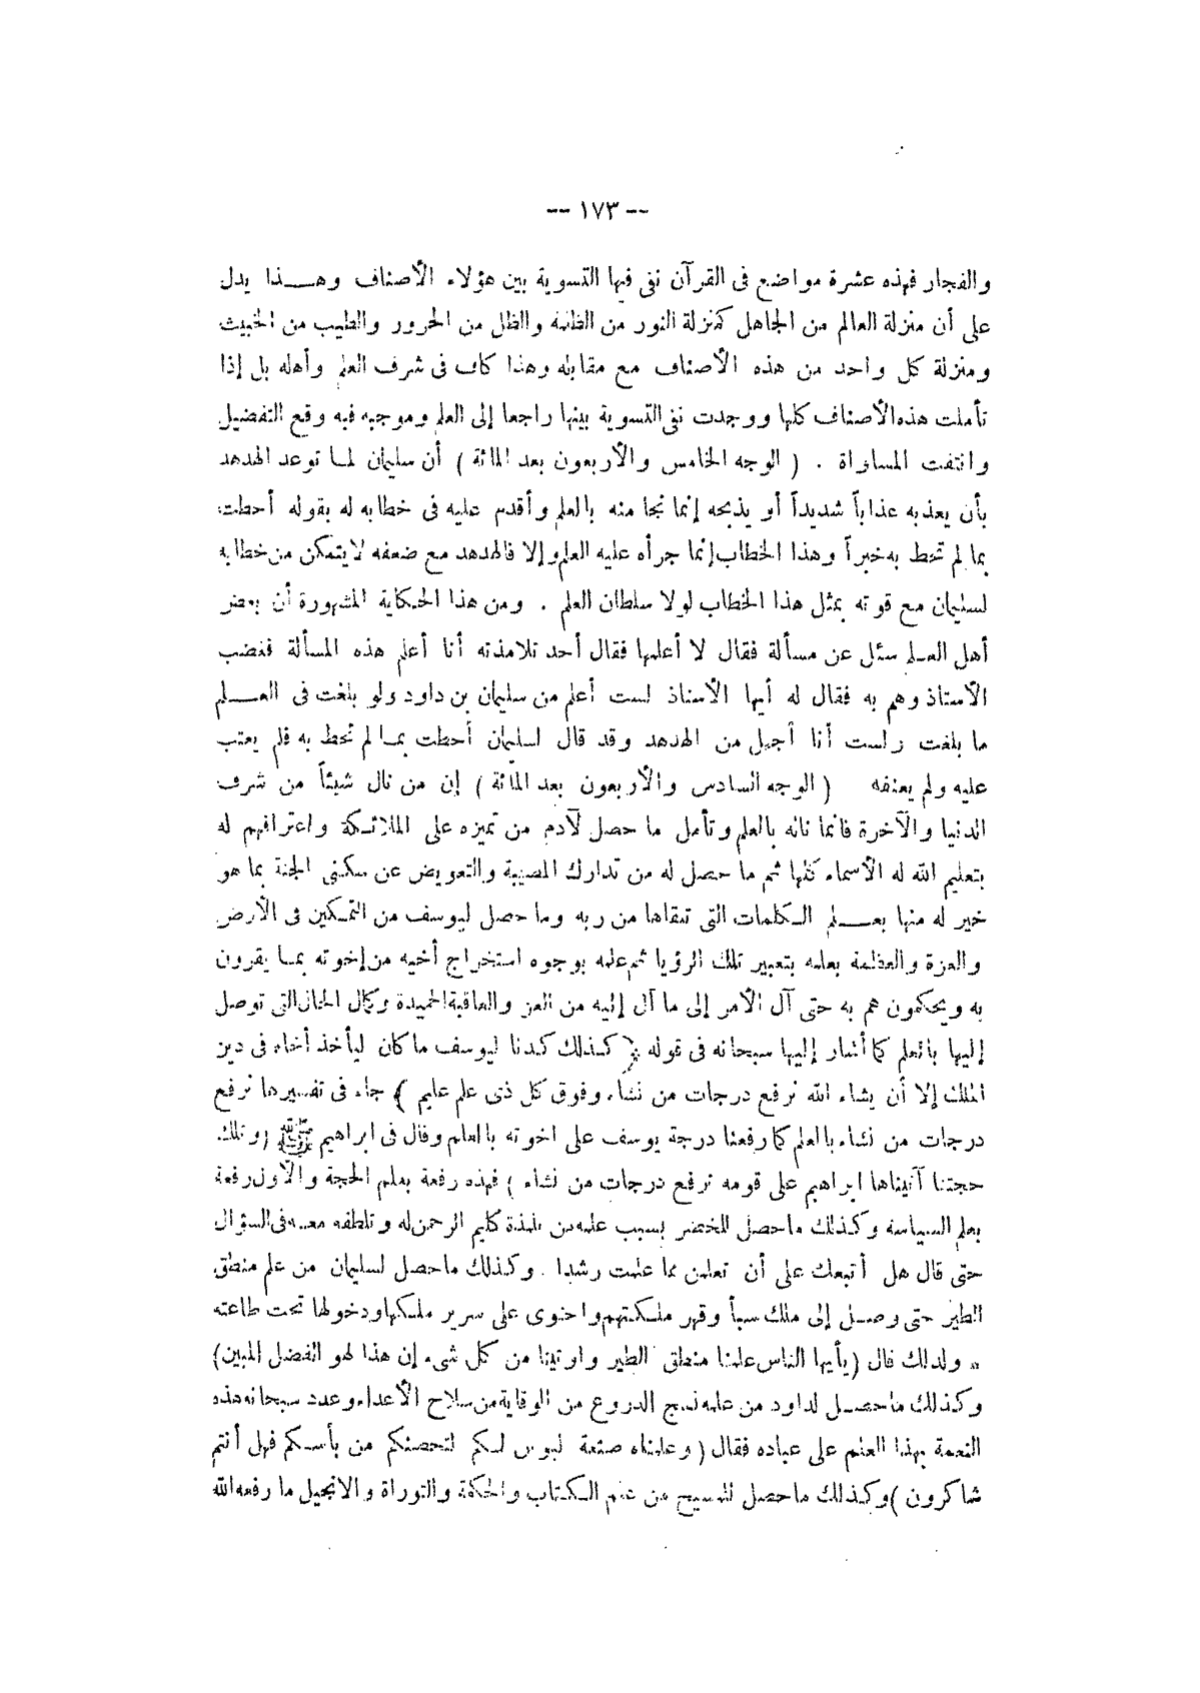 -- ١٧٣ --
والفجار فهذه عشرة مواضع فى القرآن نفى فيها التسوية بين هؤلاء الأصناف وهـــذا يدل
على أن منزلة العالم من الجاهل كمنزلة النور من الظلمة والظل من الحرور والطيب من الخبيث
ومنزلة كل واحد من هذه الأصناف مع مقابله وهذا كاف فى شرف العلم وأهله بل إذا
تأملت هذه الأصناف كلها ووجدت نفى التسوية بينها راجعا إلى العلم وموجبه فبه وقع التفضيل
وانتفت المساواة . ( الوجه الخامس والأربعون بعد المائة ) أن سليمان لمـا توعد الهدهد
بأن يعذبه عذاباً شديداً أو يذبحه إنما نجا منه بالعلم وأقدم عليه فى خطابه له بقوله أحطت
بما لم تحط به خبراً وهذا الخطاب إنما جرأه عليه العلم وإلا فالهدهد مع ضعفه لا يتمكن من خطابه
لسليمان مع قوته بمثل هذا الخطاب لولا سلطان العلم . ومن هذا الحكاية المشهورة أن بعض
أهل العـلم سئل عن مسألة فقال لا أعلمها فقال أحد تلامذته أنا أعلم هذه المسألة فغضب
الأستاذ وهم به فقال له أيها الأستاذ لست أعلم من سليمان بن داود ولو بلغت فى العـــلم
ما بلغت ولست أنا أجهل من الهدهد وقد قال لسليمان أحطت بمـا لم تحط به فلم يعتب
عليه ولم يعنفه ( الوجه السادس والأربعون بعد المائة ) إن من نال شيئاً من شرف
الدنيا والآخرة فانما ناله بالعلم وتأمل ما حصل لآدم من تميزه على الملائـكة واعترافهم له
بتعليم الله له الأسماء كلها ثم ما حصل له من تدارك المصيبة والتعويض عن سكنى الجنة بما هو
خير له منها بعـــلم الـكلمات التى تلقاها من ربه وما حصل ليوسف من التمـكين فى الأرض
والعزة والعظمة بعلمه بتعبير تلك الرؤيا ثم علمه بوجوه استخراج أخيه من إخوته بمـا يقرون
به ويحكمون هم به حتى آل الأمر إلى ما آل إليه من العز والعاقبة الحميدة وكمال الحال التى توصل
إليها بالعلم كما أشار إليها سبحانه فى قوله ( كـذلك كدنا ليوسف ما كان ليأخذ أخاه فى دين
الملك إلا أن يشاء الله نرفع درجات من نشاء وفوق كل ذى علم عليم ) جاء فى تفسيرها نرفع
درجات من نشاء بالعلم كما رفعنا درجة يوسف على اخوته بالعلم وقال فى ابراهيم ﷺ (وتلك
حجتنا آتيناها ابراهيم على قومه نرفع درجات من نشاء ) فهذه رفعة بعلم الحجة والأول رفعة
بعلم السياسة وكـذلك ما حصل للخضر بسبب علمه من تلمذة كليم الرحمن له وتلطفه معـه فى السؤال
حتى قال هل أتبعك على أن تعلمن مما علمت رشدا . وكـذلك ما حصل لسليمان من علم منطق
الطير حتى وصـل إلى ملك سبأ وقهر ملـكتهم واحتوى على سرير ملـكها ودخولها تحت طاعته
ولذلك قال (يأيها الناس علمنا منطق الطير واوتينا من كل شىء إن هذا لهو الفضل المبين)
وكـذلك ما حصـل لداود من علمه نسج الدروع من الوقاية من سلاح الأعداء وعدد سبحانه هذه
النعمة بهذا العلم على عباده فقال ( وعلمناه صنعة لبوس لـكم لتحصنكم من بأسـكم فهل أنتم
شاكرون ) وكـذلك ما حصل للمسيح من علم الـكتاب والحكمة والتوراة والانجيل ما رفعه الله